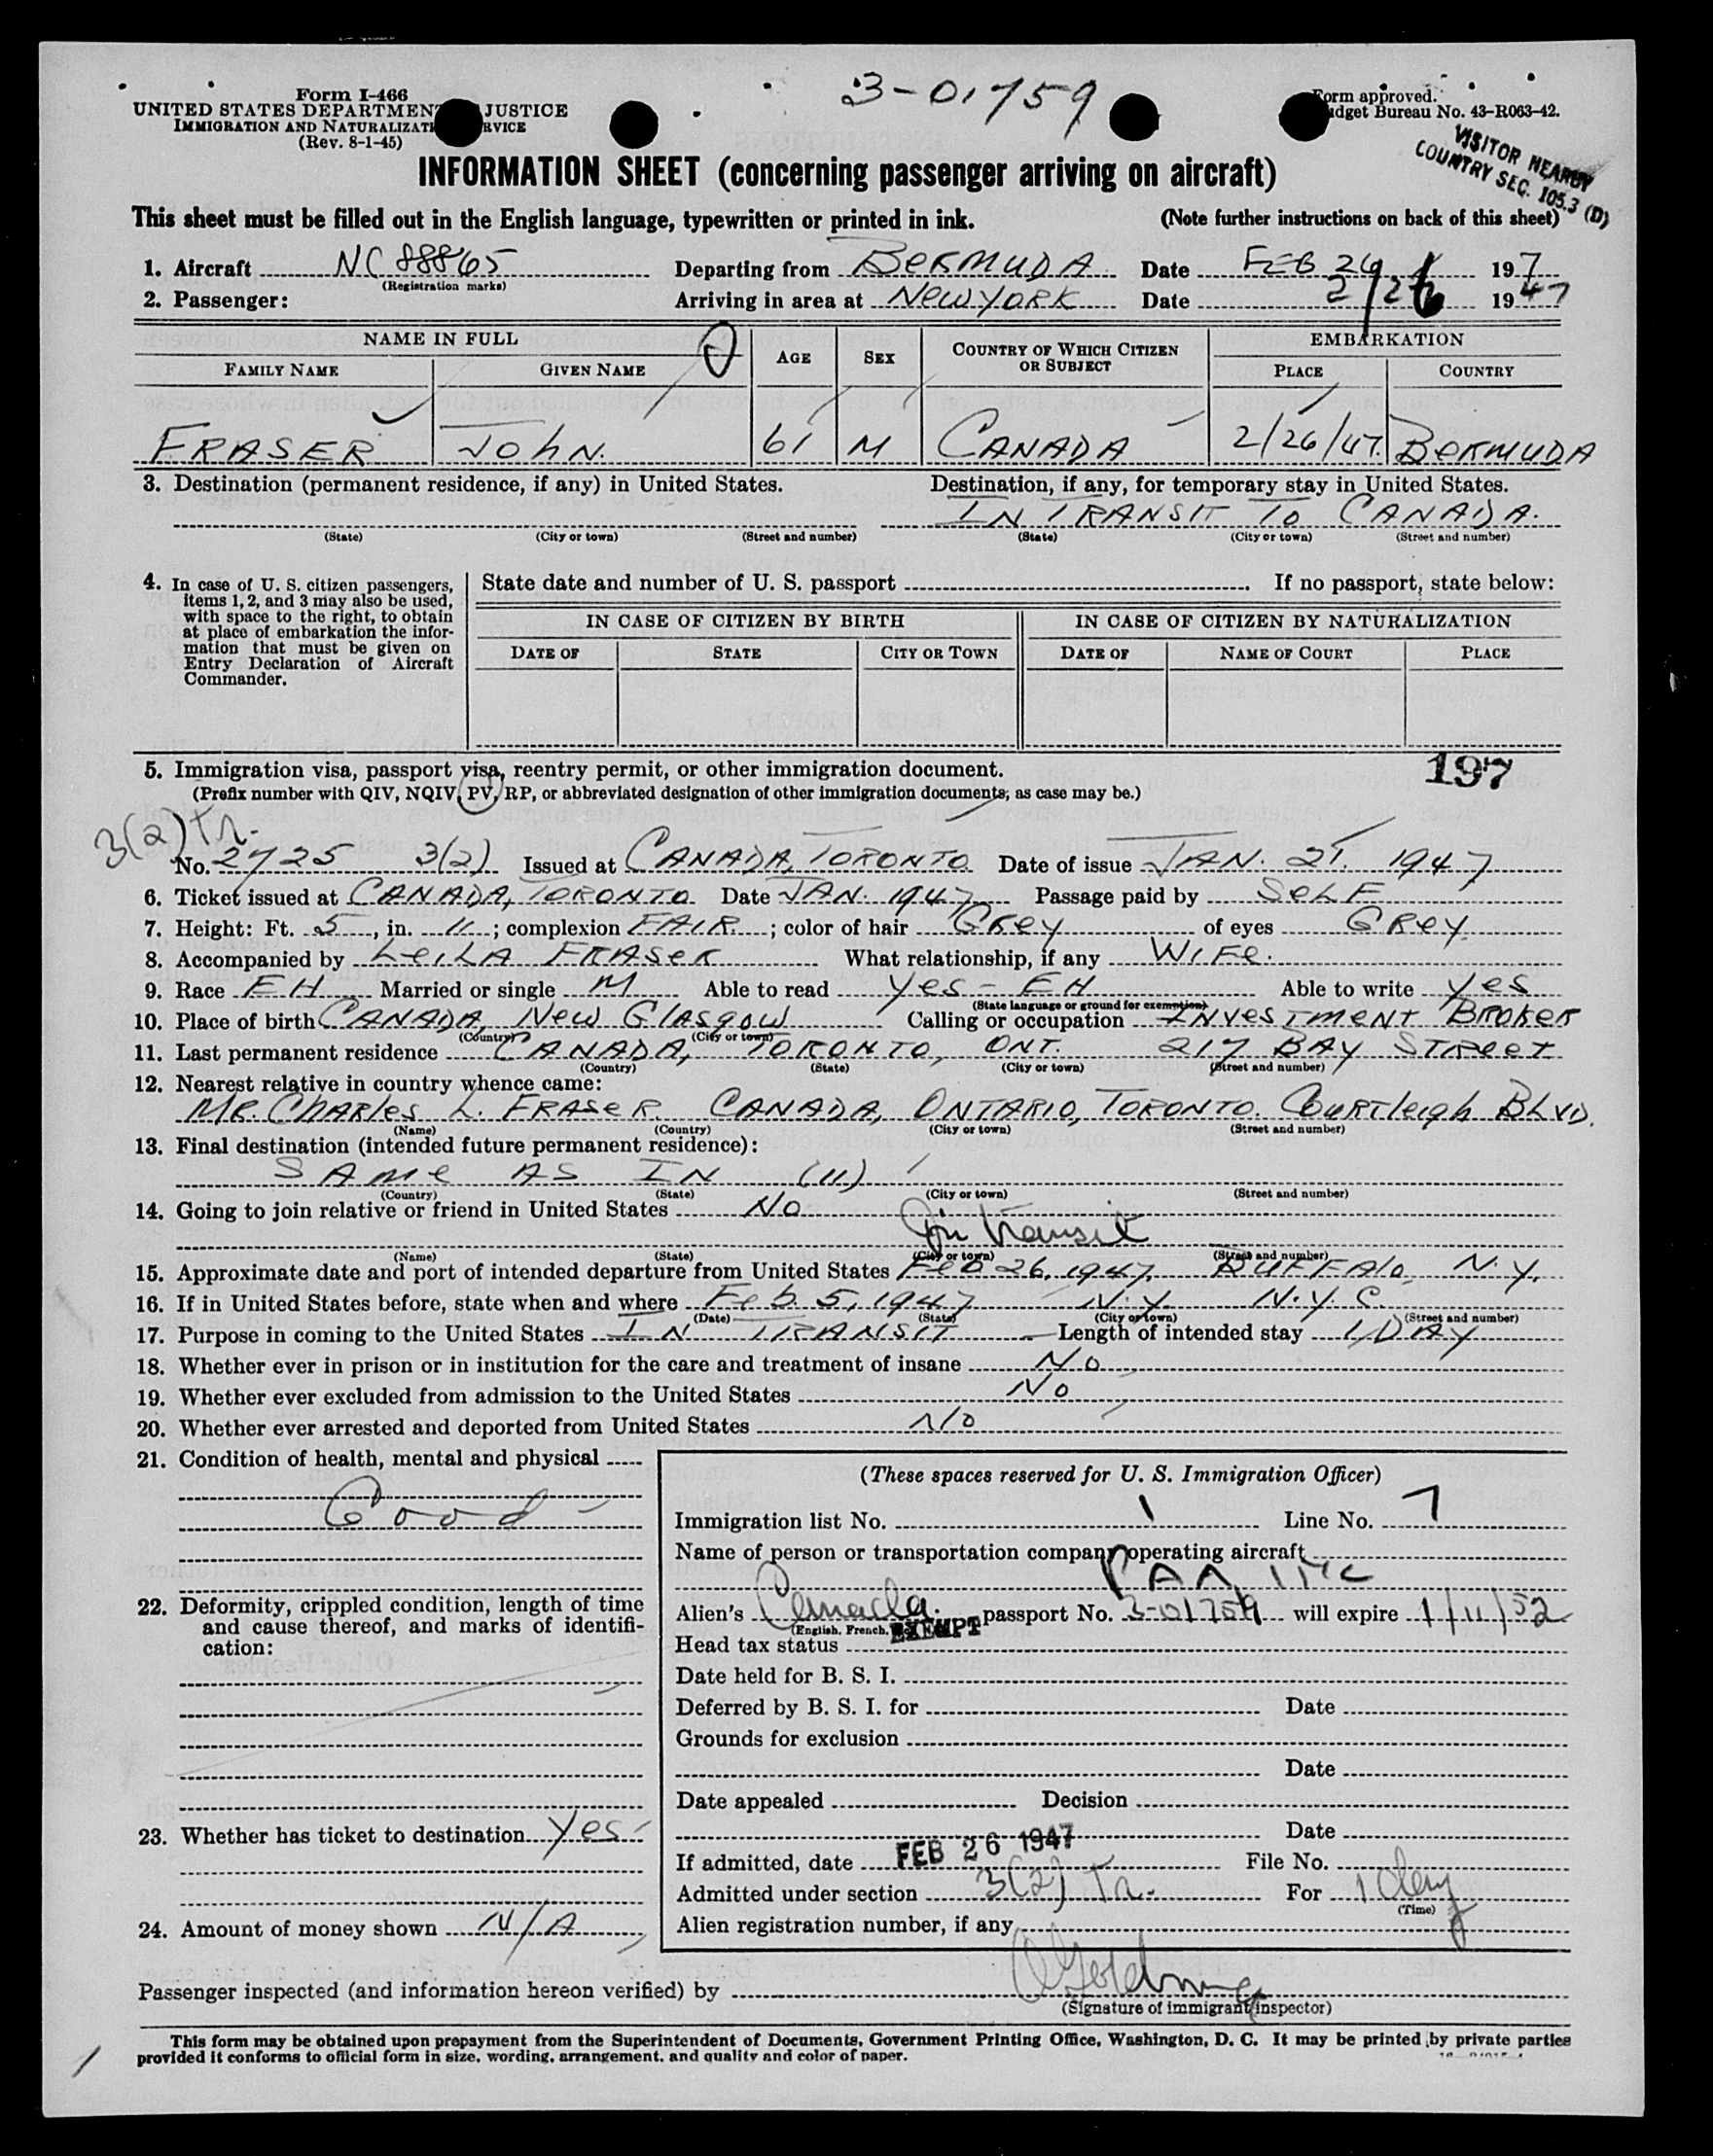 3-01759
Form I-466
UNITED STATES DEPARTMENT JUSTICE
IMMIGRATION AND NATURALIZATI RVICE
(Rev. 8-1-45)
Form approved.
dget Bureau No. 43-R063-42.
VISITOR NEARBY
COUNTRY SEC. 105.3 (D)
INFORMATION SHEET (concerning passenger arriving on aircraft)
This sheet must be filled out in the English language, typewritten or printed in ink. (Note further instructions on back of this sheet)
1. Aircraft NC 88865 Departing from BERMUDA Date FEB 26 197
(Registration marks)
2. Passenger: Arriving in area at NEW YORK Date 2/26 1947
NAME IN FULL AGE SEX COUNTRY OF WHICH CITIZEN OR SUBJECT EMBARKATION
FAMILY NAME GIVEN NAME PLACE COUNTRY
FRASER JOHN. 61 M CANADA 2/26/47. BERMUDA
3. Destination (permanent residence, if any) in United States. Destination, if any, for temporary stay in United States.
IN TRANSIT TO CANADA.
(State) (City or town) (Street and number) (State) (City or town) (Street and number)
4. In case of U. S. citizen passengers, items 1, 2, and 3 may also be used, with space to the right, to obtain at place of embarkation the information that must be given on Entry Declaration of Aircraft Commander.
State date and number of U. S. passport If no passport, state below:
IN CASE OF CITIZEN BY BIRTH IN CASE OF CITIZEN BY NATURALIZATION
DATE OF STATE CITY OR TOWN DATE OF NAME OF COURT PLACE
5. Immigration visa, passport visa, reentry permit, or other immigration document. 197
(Prefix number with QIV, NQIV, PV, RP, or abbreviated designation of other immigration documents, as case may be.)
3(2) Tr.
No. 2725 3(2) Issued at CANADA, TORONTO Date of issue JAN. 21. 1947
6. Ticket issued at CANADA, TORONTO Date JAN. 1947 Passage paid by SELF
7. Height: Ft. 5, in. 11; complexion FAIR; color of hair GREY of eyes GREY.
8. Accompanied by LEILA FRASER What relationship, if any WIFE.
9. Race EH Married or single M Able to read YES - EH Able to write YES
(State language or ground for exemption)
10. Place of birth CANADA, NEW GLASGOW Calling or occupation INVESTMENT BROKER
(Country) (City or town)
11. Last permanent residence CANADA, TORONTO, ONT. 217 BAY STREET
(Country) (State) (City or town) (Street and number)
12. Nearest relative in country whence came:
MR. CHARLES L. FRASER CANADA, ONTARIO, TORONTO. COURTLEIGH BLVD.
(Name) (Country) (City or town) (Street and number)
13. Final destination (intended future permanent residence):
SAME AS IN (11)
(Country) (State) (City or town) (Street and number)
14. Going to join relative or friend in United States No
In transit
(Name) (State) (City or town) (Street and number)
15. Approximate date and port of intended departure from United States FEB 26, 1947. BUFFALO, N.Y.
16. If in United States before, state when and where Feb. 5, 1947 N.Y. N.Y.C.
(Date) (State) (City or town) (Street and number)
17. Purpose in coming to the United States IN TRANSIT Length of intended stay 1 DAY
18. Whether ever in prison or in institution for the care and treatment of insane No
19. Whether ever excluded from admission to the United States No
20. Whether ever arrested and deported from United States No
21. Condition of health, mental and physical
Good
22. Deformity, crippled condition, length of time and cause thereof, and marks of identification:
23. Whether has ticket to destination Yes
24. Amount of money shown N/A
(These spaces reserved for U. S. Immigration Officer)
Immigration list No. 1 Line No. 7
Name of person or transportation company operating aircraft
PAA, INC
Alien's Canada. passport No. 3-01759 will expire 1/11/52
(English, French,
Head tax status EXEMPT
Date held for B. S. I.
Deferred by B. S. I. for Date
Grounds for exclusion
Date
Date appealed Decision
Date
If admitted, date FEB 26 1947 File No.
Admitted under section 3(2) Tr. For 1 day
(Time)
Alien registration number, if any
Passenger inspected (and information hereon verified) by
(Signature of immigrant inspector)
This form may be obtained upon prepayment from the Superintendent of Documents, Government Printing Office, Washington, D. C. It may be printed by private parties
provided it conforms to official form in size, wording, arrangement, and quality and color of paper.